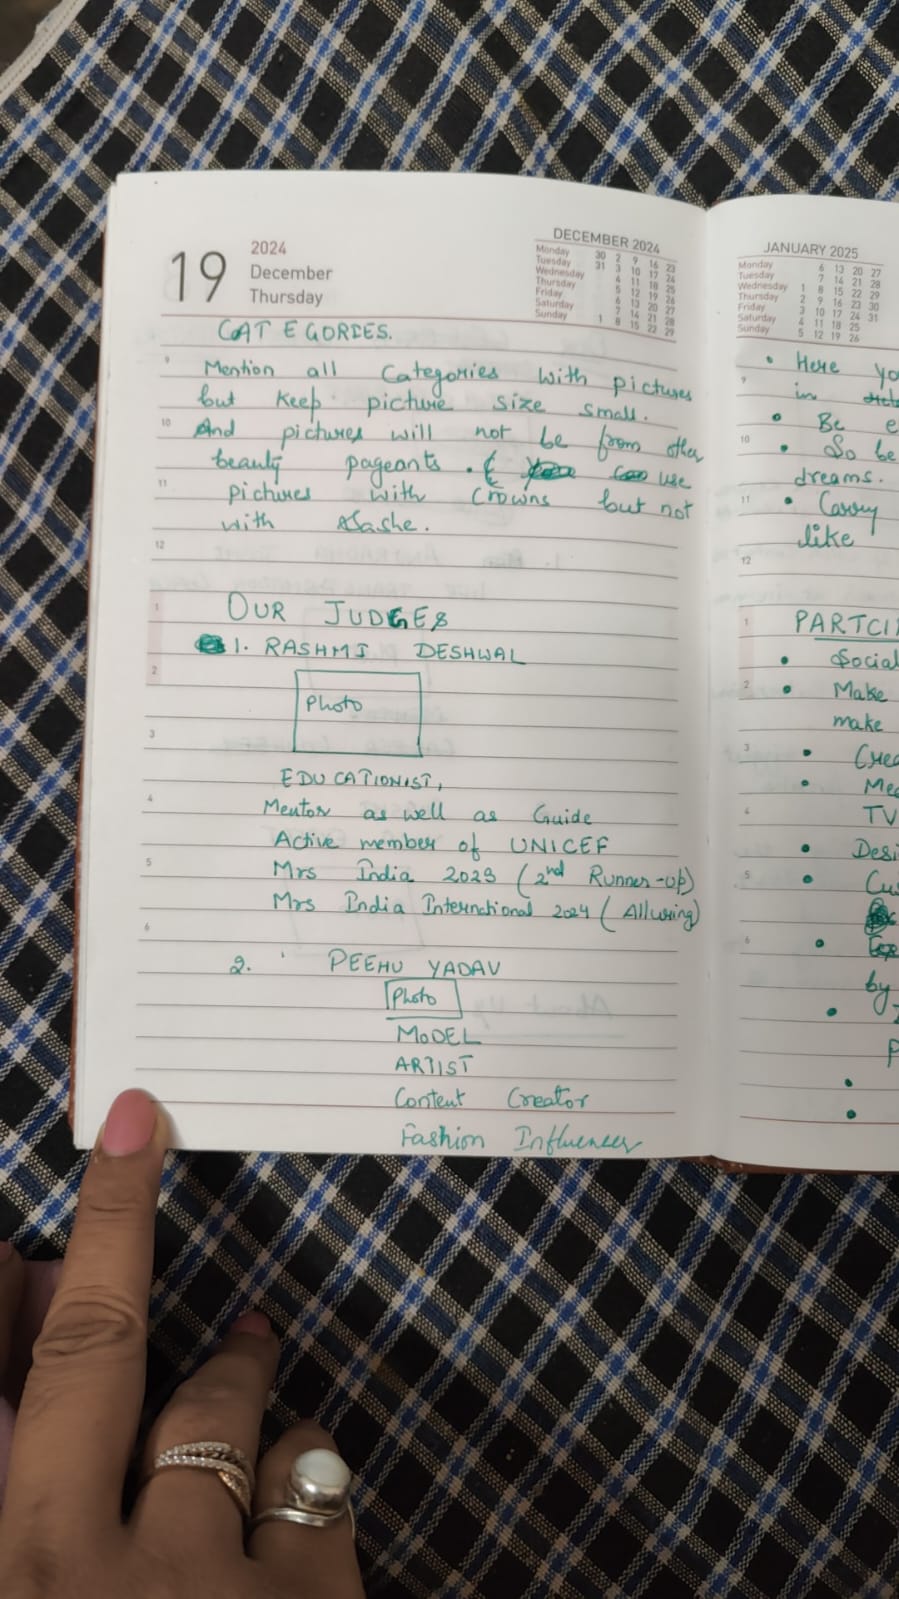 19
2024
December
Thursday
DECEMBER 2024
Monday 30 2 9 16 23
Tuesday 31 3 10 17 24
Wednesday 4 11 18 25
Thursday 5 12 19 26
Friday 6 13 20 27
Saturday 7 14 21 28
Sunday 1 8 15 22 29
CATEGORIES.
9
Mention all Categories with pictures
but keep picture size small.
10
And pictures will not be from other
beauty pageants. & use
11
pictures with Crowns but not
with Sashe.
12
1
OUR JUDGES
1. RASHMI DESHWAL
2
Photo
3
EDUCATIONIST,
4
Mentor as well as Guide
Active member of UNICEF
5
Mrs India 2023 (2nd Runner-up)
Mrs India International 2024 (Alluring)
6
2. PEEHU YADAV
Photo
MODEL
ARTIST
Content Creator
Fashion Influencer
JANUARY 2025
Monday 6 13 20 27
Tuesday 7 14 21 28
Wednesday 1 8 15 22 29
Thursday 2 9 16 23 30
Friday 3 10 17 24 31
Saturday 4 11 18 25
Sunday 5 12 19 26
• Here yo
9
in
• Be e
10
• So be
dreams.
11
• Carry
like
12
1
PARTCI
• Social
2
• Make
make
3
• Crea
• Med
4
TV
• Desi
5
• Cu
6
•
by
•
P
•
•